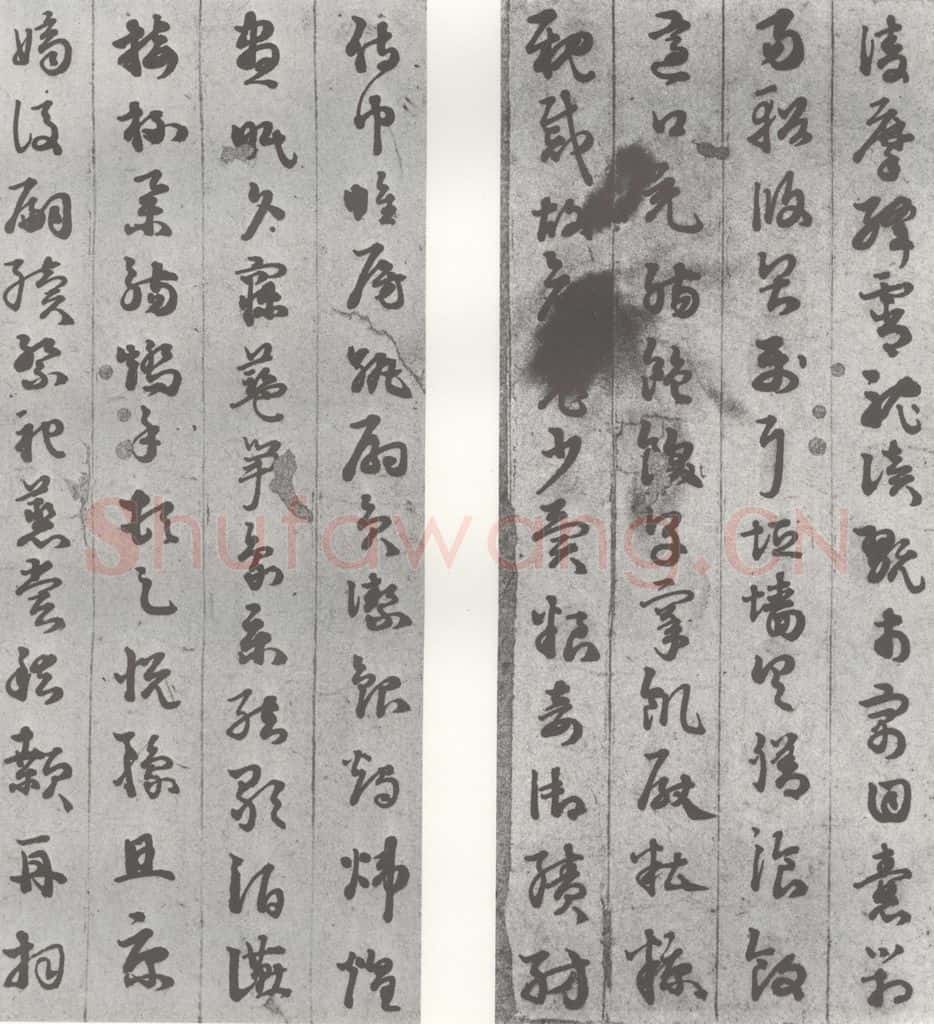 凌摩絳霄耽讀翫市寓目囊箱
易輶攸畏屬耳垣墻具膳飡飯
適口充腸飽飫烹宰飢厭糟糠
親戚故舊老少異粮妾御績紡
侍巾帷房紈扇員潔銀燭煒煌
晝眠夕寐藍笋象床絃歌酒讌
接杯舉觴矯手頓足悅豫且康
嫡後嗣續祭祀蒸嘗稽顙再拜
Shufawang.CN